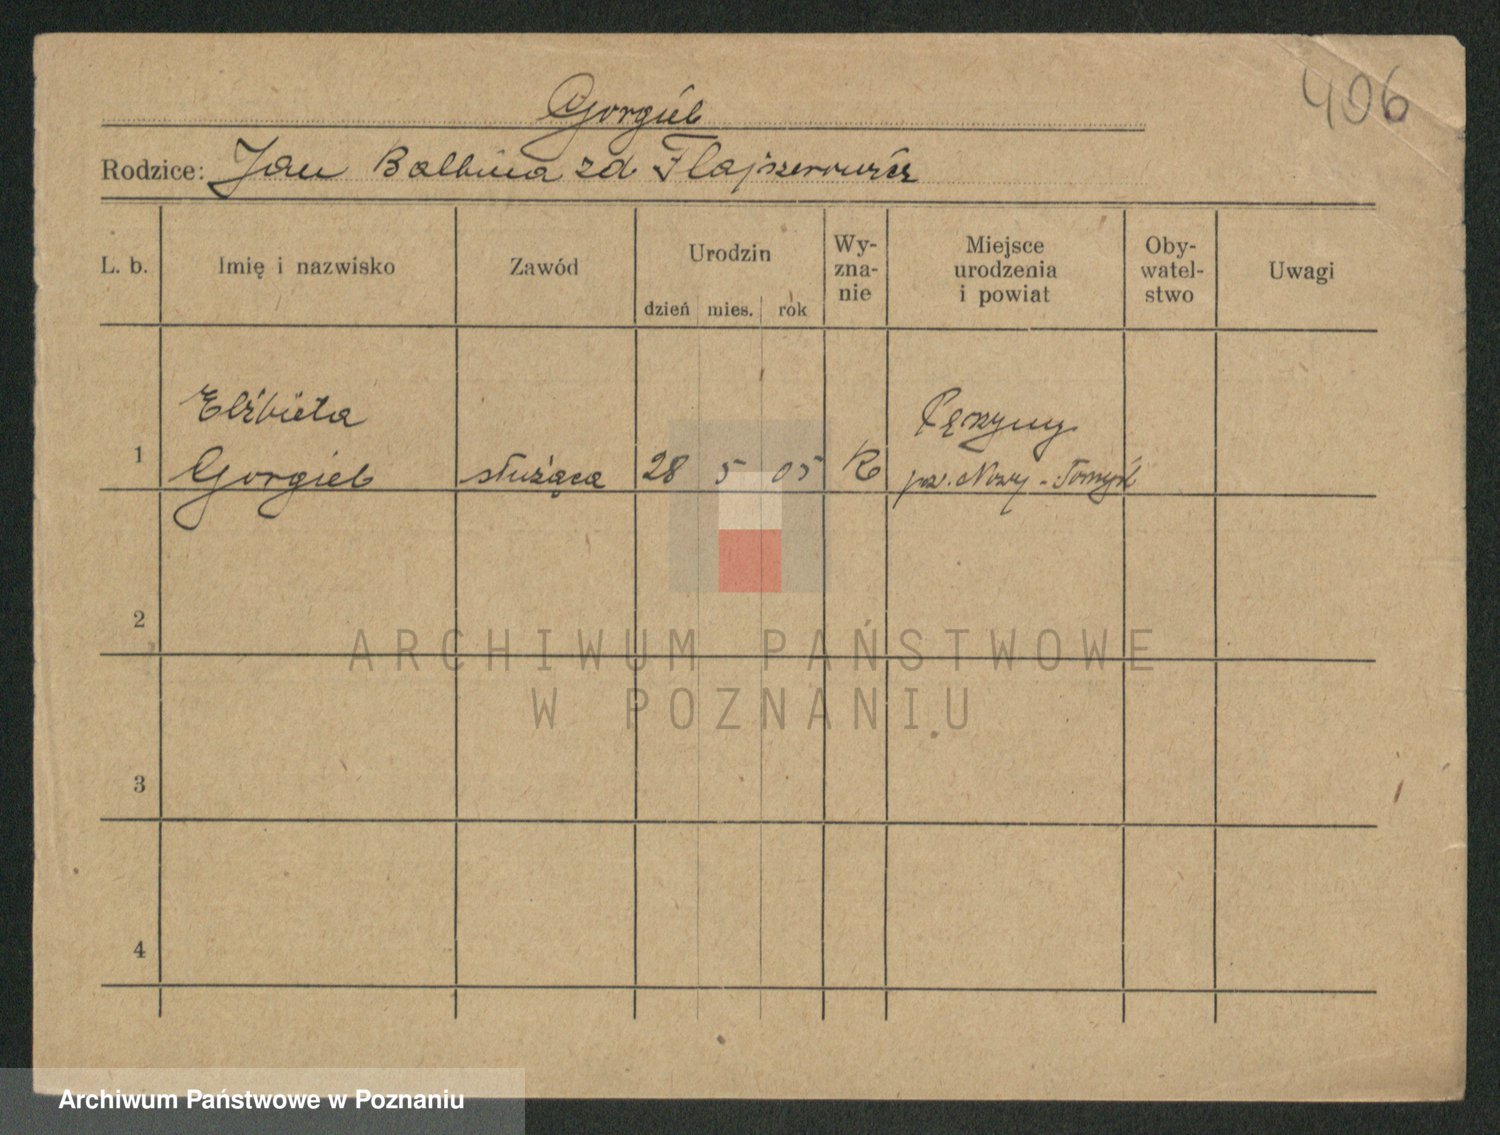 406
Gorgieb
Rodzice: Jan Balbina zd Flajszerowicz
L. b.
Imię i nazwisko
Zawód
Urodzin
dzień mies. rok
Wy-
zna-
nie
Miejsce
urodzenia
i powiat
Oby-
watel-
stwo
Uwagi
1
Elżbieta
Gorgieb
służąca
28 5 05
R
pow. Nowy-Tomyśl
2
3
4
ARCHIWUM PAŃSTWOWE
W POZNANIU
Archiwum Państwowe w Poznaniu